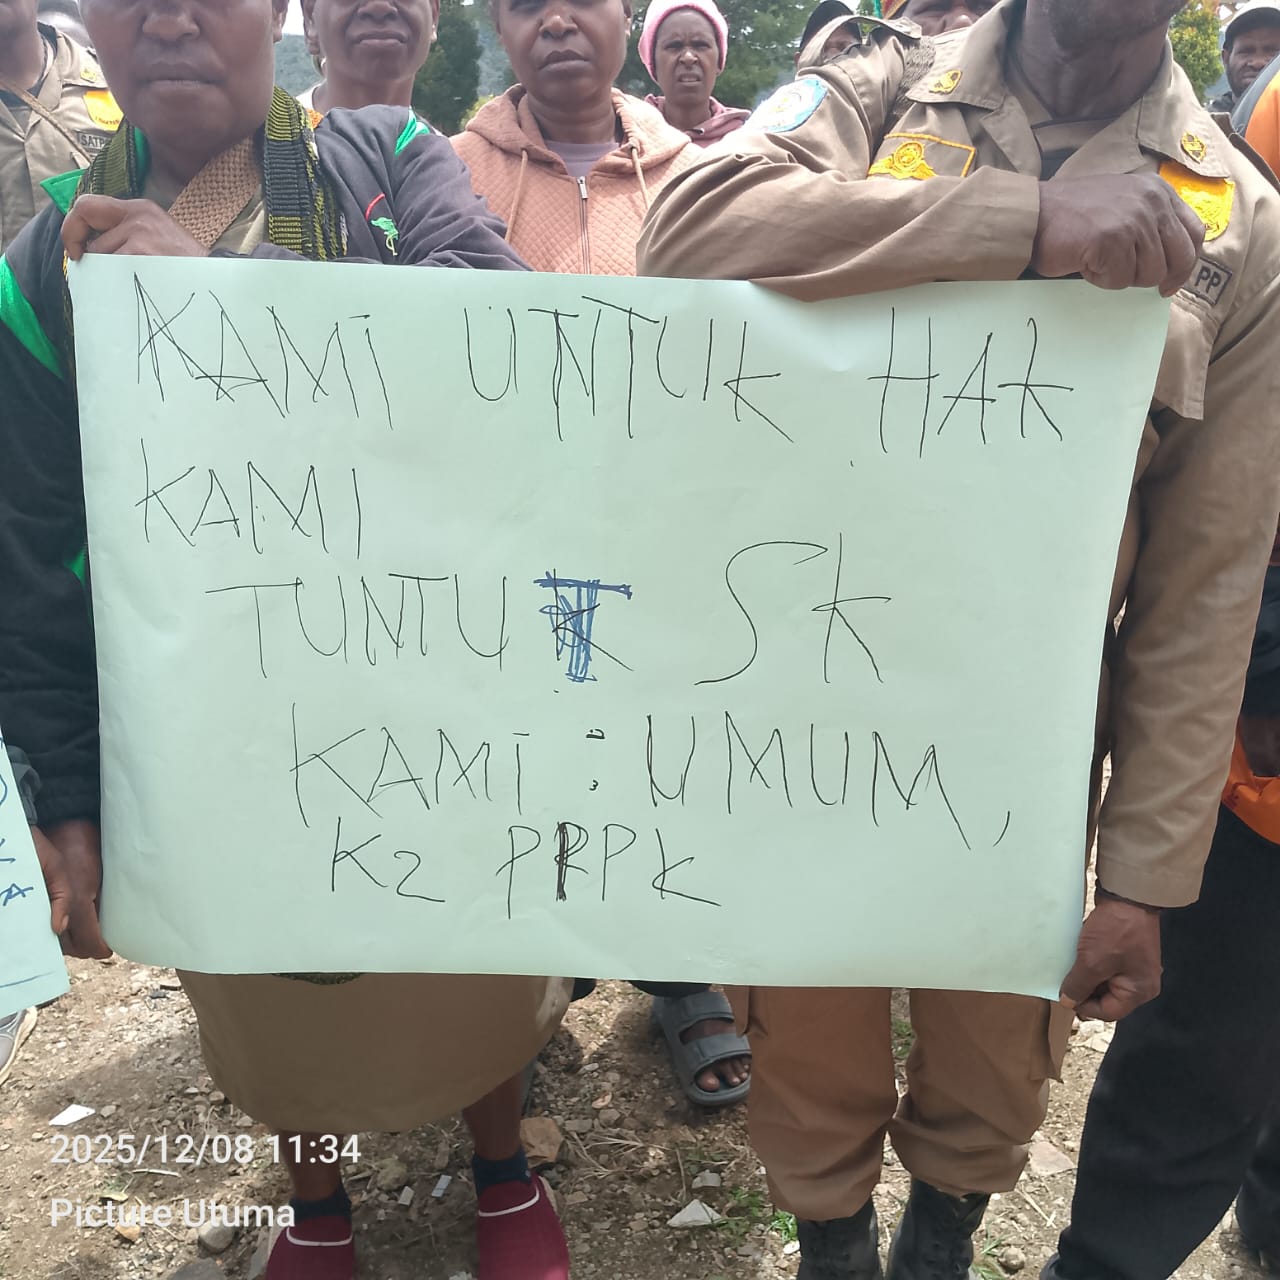 SATPO
PP
KAMI UNTUK HAK
KAMI
TUNTUT SK
KAMI : UMUM,
K2 PPPK
2025/12/08 11:34
Picture Utuma